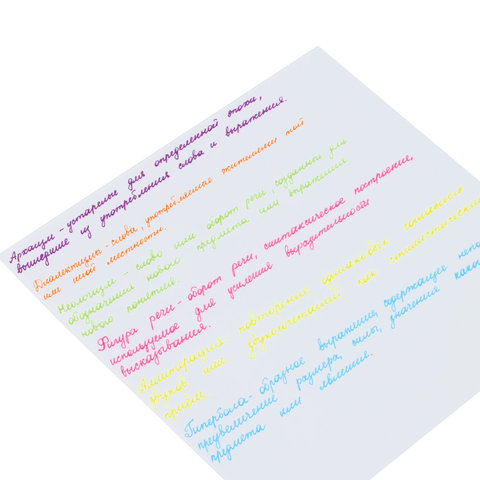 Архаизм - устарелые для определенной эпохи,
вышедшие из употребления слова и выражения.
Диалектизм - слова, употребляемые жителями той
или иной местности.
Неологизм - слово или оборот речи, созданный для
обозначения нового предмета или выражения
нового понятия.
Фигура речи - оборот речи, синтаксическое построение,
используемое для усиления выразительности
высказывания.
Аллитерация повторение одинаковых согласных
звуков или звукосочетаний как стилистический
приём.
Гипербола - образное выражение, содержащее непо
преувеличение размера, силы, значения како
предмета или явления.